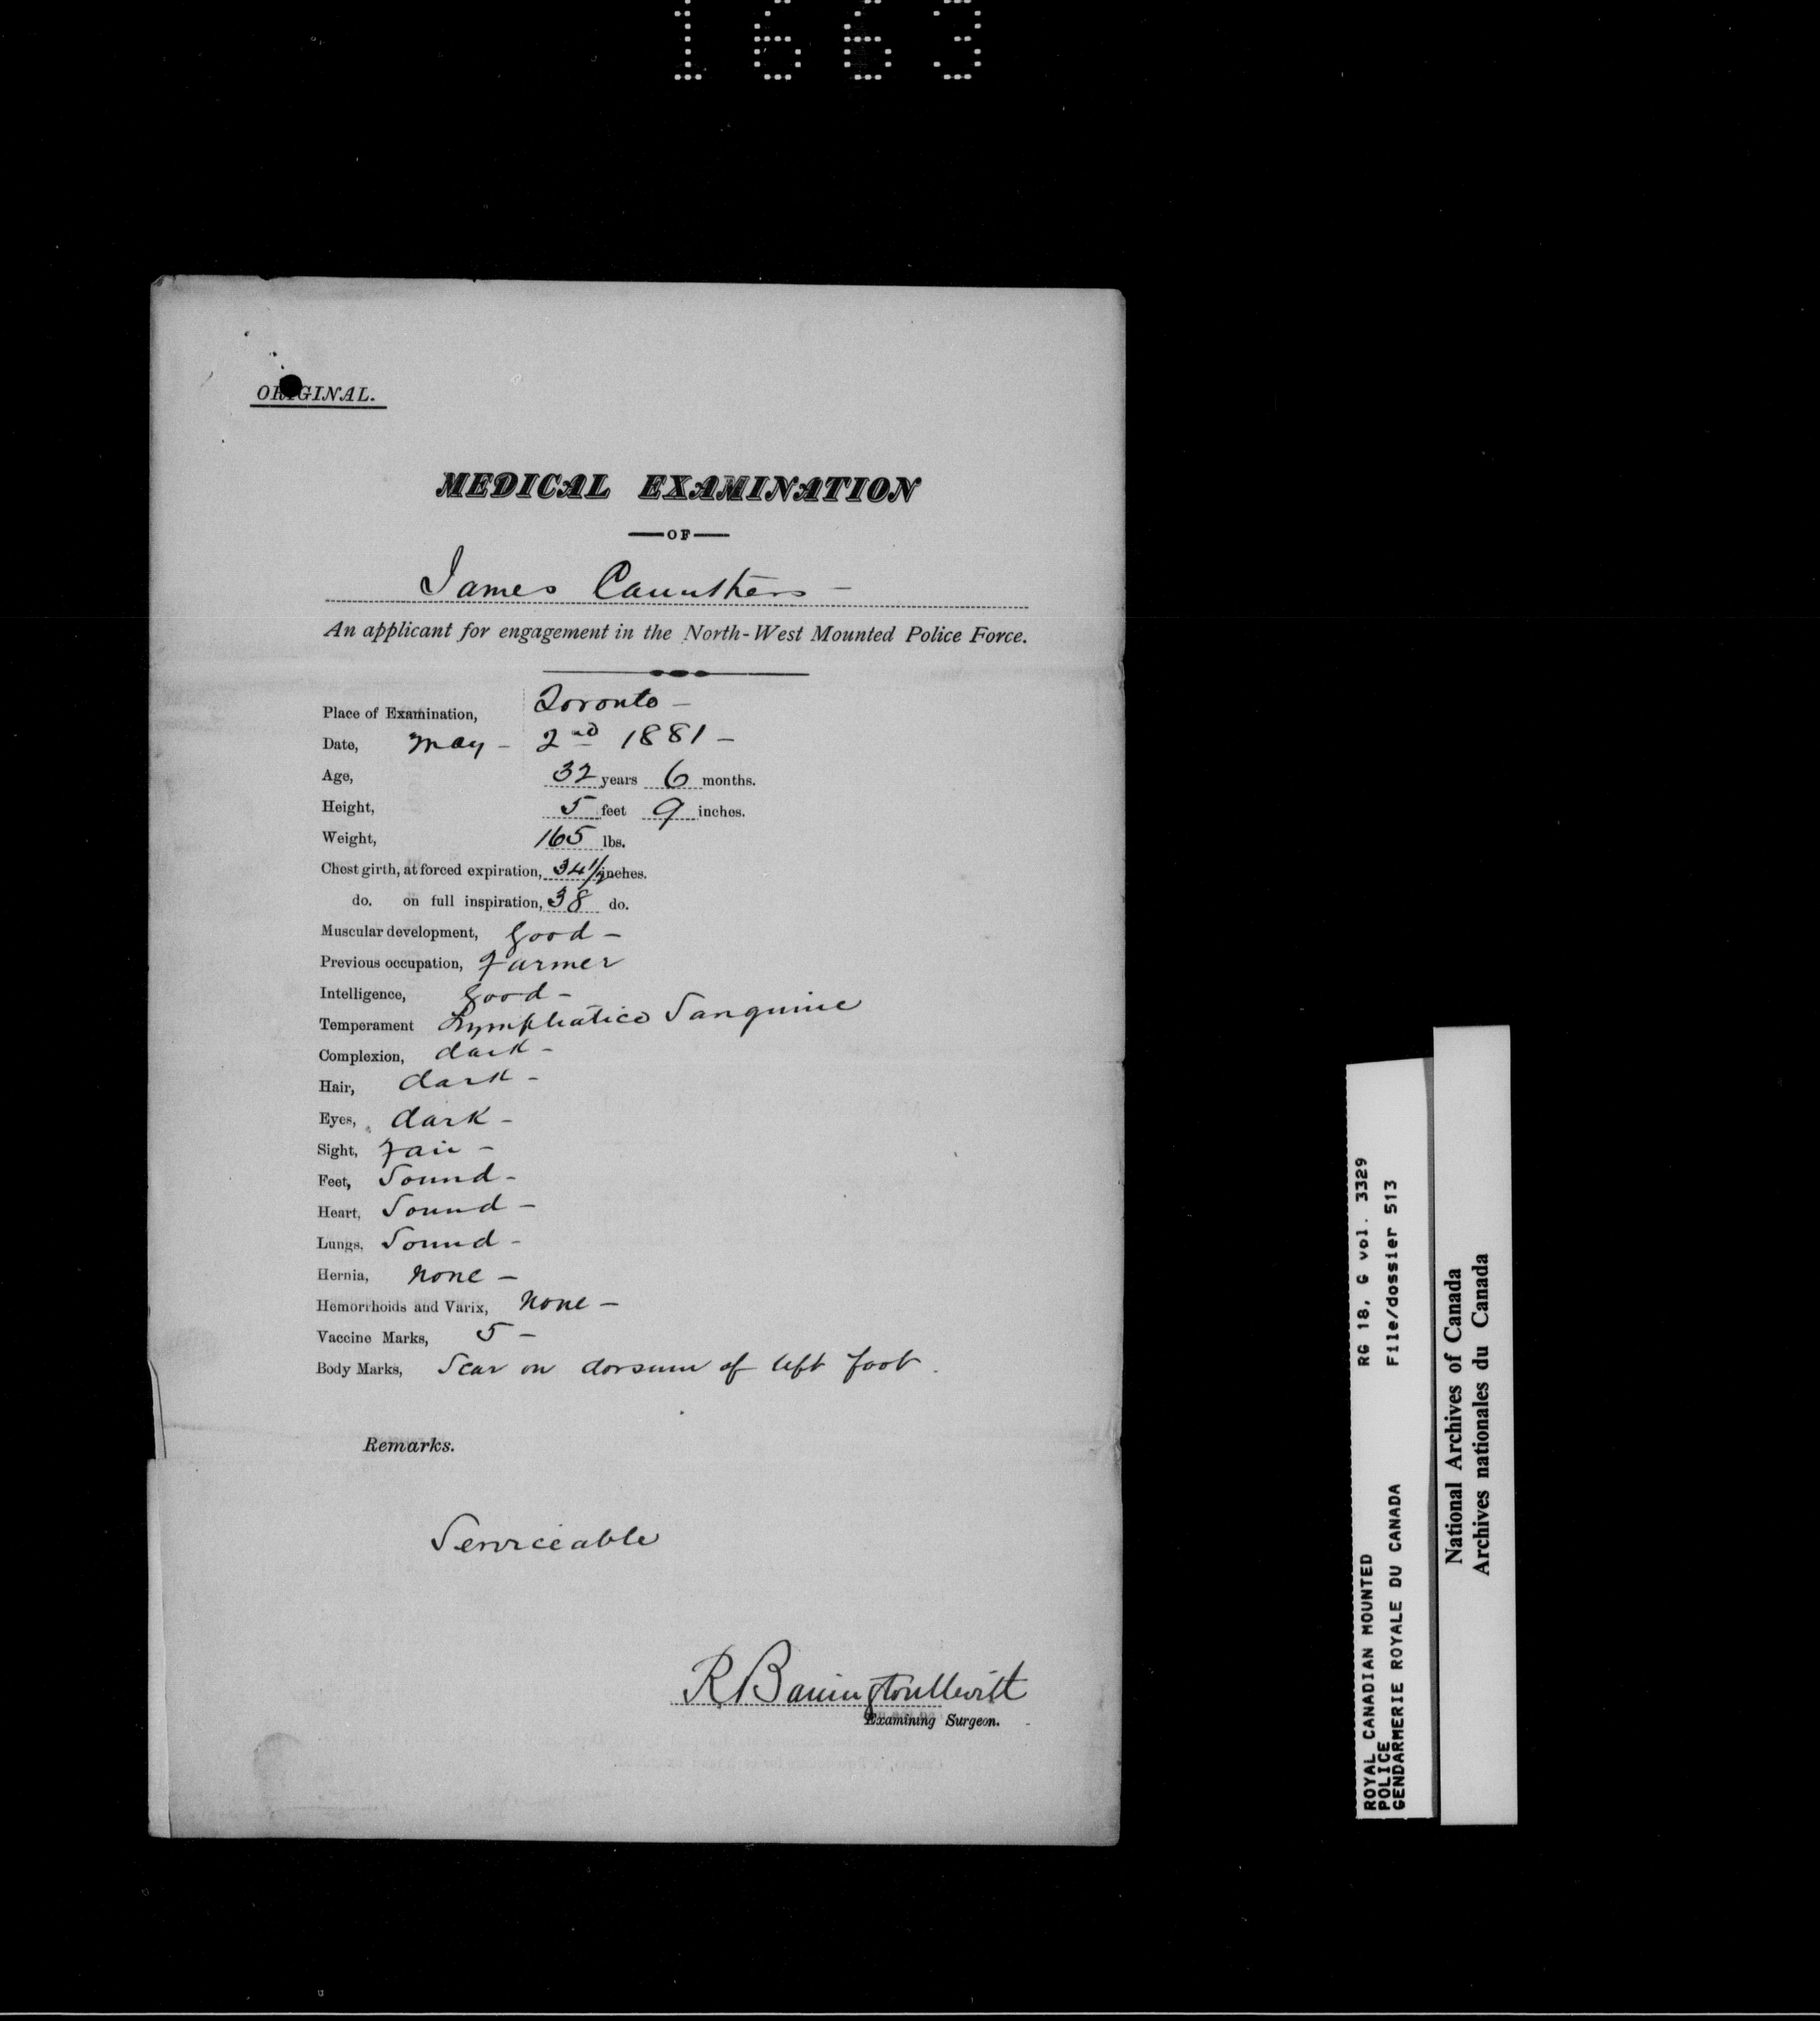 1663
ORIGINAL.
MEDICAL EXAMINATION
OF
James Carruthers
An applicant for engagement in the North-West Mounted Police Force.
Place of Examination, Toronto -
Date, May - 2nd 1881 -
Age, 32 years 6 months.
Height, 5 feet 9 inches.
Weight, 165 lbs.
Chest girth, at forced expiration, 34 1/2 inches.
do. on full inspiration, 38 do.
Muscular development, good -
Previous occupation, Farmer
Intelligence, good -
Temperament Lymphatico Sanguine
Complexion, dark -
Hair, dark -
Eyes, dark -
Sight, fair -
Feet, Sound -
Heart, Sound -
Lungs, Sound -
Hernia, none -
Hemorrhoids and Varix, none -
Vaccine Marks, 5 -
Body Marks, Scar on dorsum of left foot.
Remarks.
Serviceable
R Barrington Nevitt
Examining Surgeon.
ROYAL CANADIAN MOUNTED RG 18, G vol. 3329
POLICE File/dossier 513
GENDARMERIE ROYALE DU CANADA
National Archives of Canada
Archives nationales du Canada